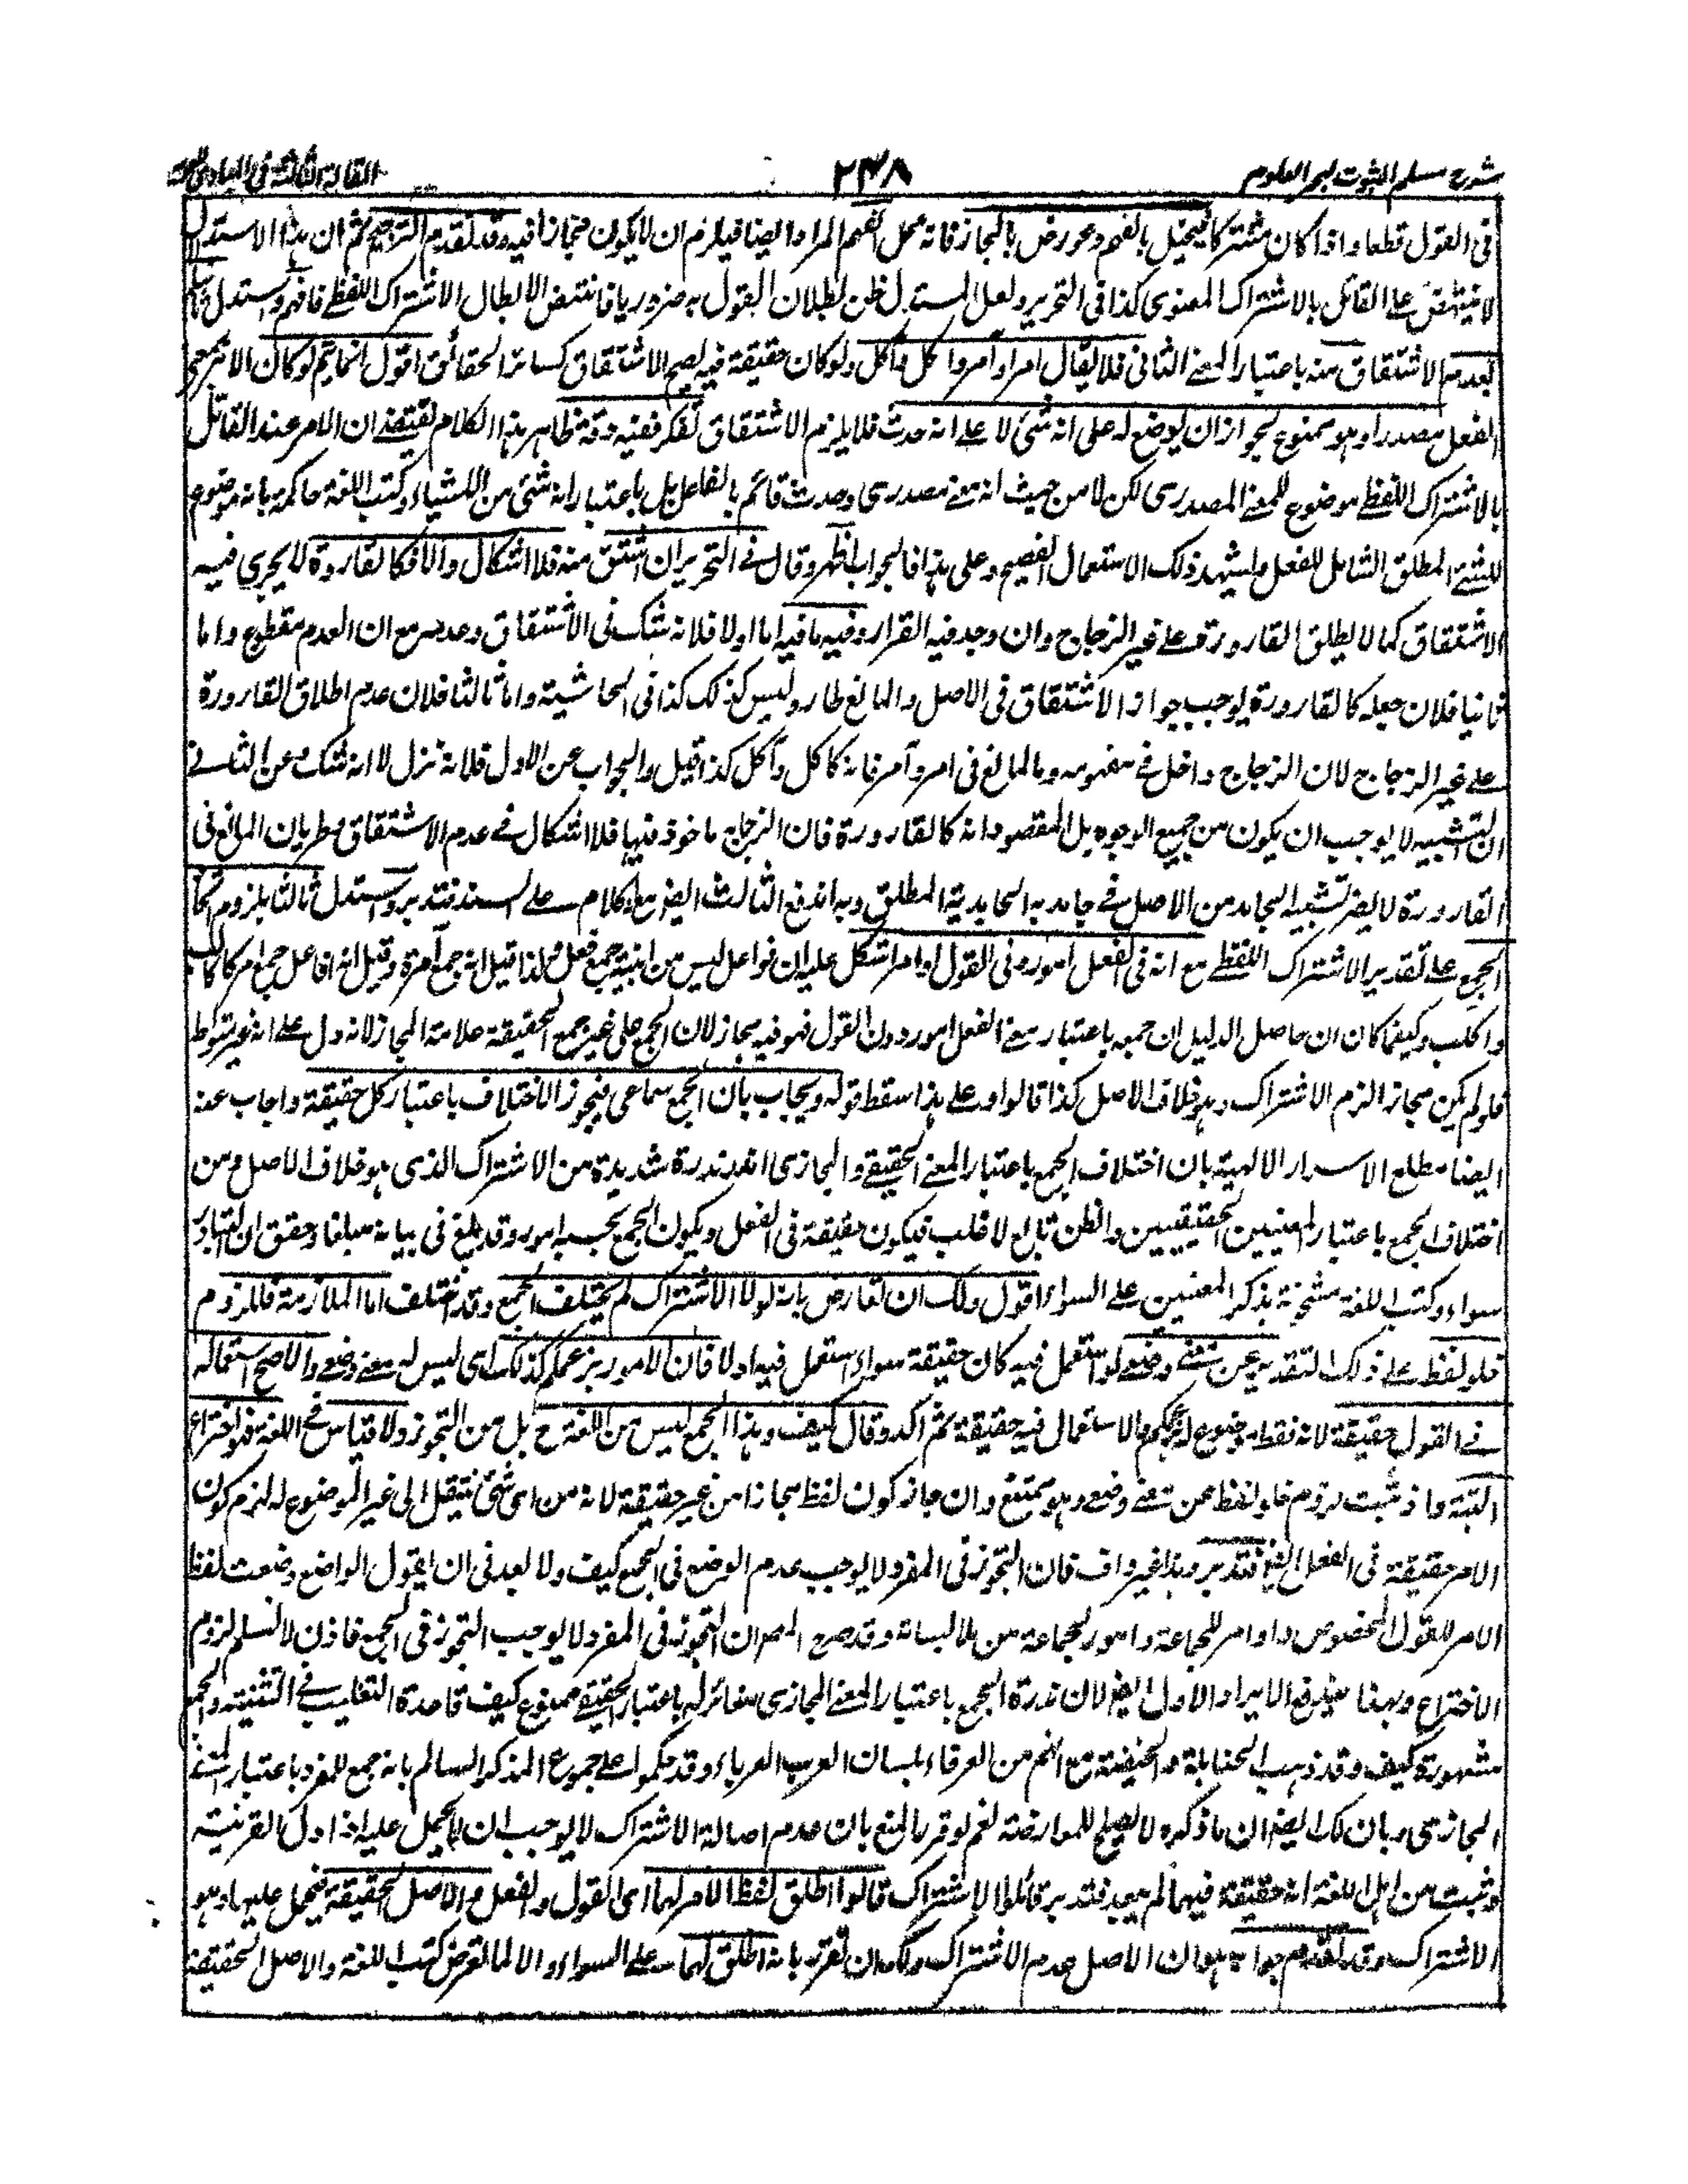 شرح مسلم الثبوت لبحر العلوم
٢٤٨
المقالة الثالثة فى المبادى
فى القول قطعا واذا كان مشتركا فيخل بالفهم وعورض بالمجاز فانه مخل لفهم المراد ايضا فيلزم ان لا يكون مجازا فيه وقد تقدم الترجيح ثم ان هذا الاستدلال
لا ينتهض على القائل بالاشتراك المعنوى كذا فى التحرير ولعل المستدل ظن بطلان القول به ضروريا فانتهض لابطال الاشتراك اللفظے فافهم واستدل ثانيا
بعدم الاشتقاق منه باعتبار المعنے الثانى فلا يقال امر وآمر وا كل وآكل ولو كان حقيقة فيه لصح الاشتقاق كسائر الحقائق اقول انما يتم لو كان الامر بمعنى
الفعل مصدرا وهو ممنوع لجواز ان يوضع له على انه شئ لا على انه حدث فلا يلزم الاشتقاق تفكر ففيه دقة ظاهر هذا الكلام يقتضے ان الامر عند القائل
بالاشتراك اللفظے موضوع للمعنے المصدرى لكن لا من حيث انه معنے مصدرى وحدث قائم بالفاعل بل باعتبار انه شئ من الاشياء وكتب اللغة حاكمة بانه موضوع
للشئ المطلق الشامل للفعل وليشهد ذلك الاستعمال الفصيح وعلى هذا فالجواب اظهر وقال فے التحرير ان اشتق منه فلا اشكال والا فكالقارورة لا يجرى فيه
الاشتقاق كما لا يطلق القارورة على غير الزجاج وان وجد فيه القرار وفيه ما فيه اما اولا فلانه شك فى الاشتقاق وعدمه مع ان العدم مقطوع واما
ثانيا فلان جعله كالقارورة يوجب جواز الاشتقاق فى الاصل والمانع طار وليس كذلك كذا فى الحاشية واما ثالثا فلان عدم اطلاق القارورة
على غير الزجاج لان الزجاج داخل فے مفهومه وما المانع فى امر وآمر فانه كاكل وآكل كذا قيل والجواب عن الاول فلانه تنزل لا انه شك وعن الثانے
ان التشبيه لا يوجب ان يكون من جميع الوجوه بل المقصود انه كالقارورة فان الزجاج ماخوذ فيها فلا اشكال فے عدم الاشتقاق وطريان المانع فى
القارورة لا يضر تشبيه الجامد من الاصل فے جامديه الجامدية المطلق وبه اندفع الثالث ايضا مع انه كلام على السند فتدبر واستدل ثالثا بلزوم اتحاد
الجمع على تقدير الاشتراك اللفظے مع انه فى الفعل امور وفى القول اوامر اشكل عليه ان فواعل ليس من ابنية جمع فعل ولذا قيل انه جمع آمرة وقيل انه افاعل جمع امر كاكالب
واكلب وكيفما كان ان حاصل الدليل ان جمعه باعتبار معنے الفعل امور دون القول فهو فيه مجاز لان الجمع على غير جمع الحقيقة علامة المجاز لانه دل على انه غير متواطى
فلو لم يكن مجازا لزم الاشتراك وهو خلاف الاصل كذا قالوا وعلى هذا سقط قوله ويجاب بان الجمع سماعى فيجوز الاختلاف باعتبار كل حقيقة واجاب عنه
ايضا مطلع الاسرار الالهية بان اختلاف الجمع باعتبار المعنے الحقيقے والمجازى اندر ندرة شديدة من الاشتراك الذى هو خلاف الاصل ومن
اختلاف الجمع باعتبار المعنيين الحقيقيين والظن تابع لاغلب فيكون حقيقة فى الفعل ويكون الجمع بحسبه امور وقد بلغ فى بيانه مبلغا وحقق ان التبادر
سواء وكتب اللغة مشحونة بذكر المعنيين على السواء اقول ولك ان تعارض بانه لولا الاشتراك لم يختلف الجمع وقد اختلف اما الملازمة فللزوم
خلو لفظ على ذلك التقدير عن معنے وضعے لو استعمل فيه كان حقيقة سواء استعمل فيه اولا فان الامور بزعمكم كذلك اى ليس له معنے وضعے والا صح استعماله
فے القول حقيقة لانه فقط موضوع له بزعمكم والاستعمال فيه حقيقة ثم اكد وقال كيف وهذا الجمع ليس من اللغة ح بل من التجوز ولا قياس فے اللغة فهو اختراع
البتة واذ ثبت لزوم خلو لفظ عن معنے وضعے وهو ممتنع وان جاز كون لفظ مجازا من غير حقيقة لانه من اى شئ ينتقل الى غير الموضوع له لزم كون
الامر حقيقة فى الفعل ايضا فتدبر وهذا غير واف فان التجوز فى المفرد لا يوجب عدم الوضع فى الجمع كيف ولا بعد فى ان يقول الواضع وضعت لفظ
الامر للقول المخصوص واوامر لجماعة وامور لجماعة من ملابساته وقد صرح المصـ ان التجوز فى المفرد لا يوجب التجوز فى الجمع فاذن لا نسلم لزوم
الاختراع وبهذا يندفع الايراد الاول ايضا لان ندرة الجمع باعتبار المعنے المجازى مغائرله باعتبار الحقيقے ممنوع كيف قاعدة التغليب فے التثنية والجمع
مشهورة كيف وقد ذهب الحنابلة والحنيفة مع انهم من العرفاء بلسان العرب العرباء وقد حكموا على جموع المذكر السالم بانه جمع للمفرد باعتبار المعنے
المجازى وبان لك ايضا ان ما ذكره لا يصلح للمعارضة نعم لو قرر بالمنع بان عدم اصالة الاشتراك لا يوجب ان لا يحمل عليه اذا دل القرينة
وثبت من اهل اللغة انه حقيقة فيهما لم يبعد فتدبر قائلوا الاشتراك قالوا اطلق لفظ الامر لهما اى القول والفعل والاصل الحقيقة فيحمل عليها وهو
الاشتراك وقد تقدم جوابه وهو ان الاصل عدم الاشتراك ولك ان تقرر بانه اطلق لهما على السواء والا لما تعرض كتب اللغة والاصل الحقيقة